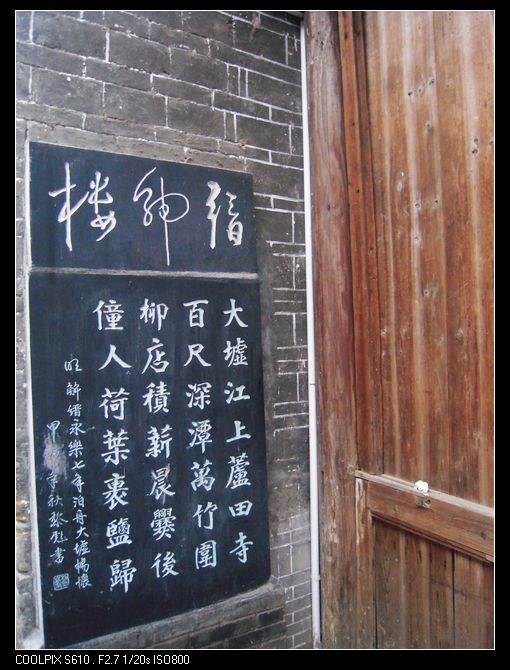 缙绅楼
大墟江上蘆田寺
百尺深潭萬竹圍
柳店積薪晨爨後
僮人荷葉裹鹽歸
明解縉永樂七年泊舟大墟偶懷
甲年秋書
COOLPIX S610 . F2.7 1/20s ISO800